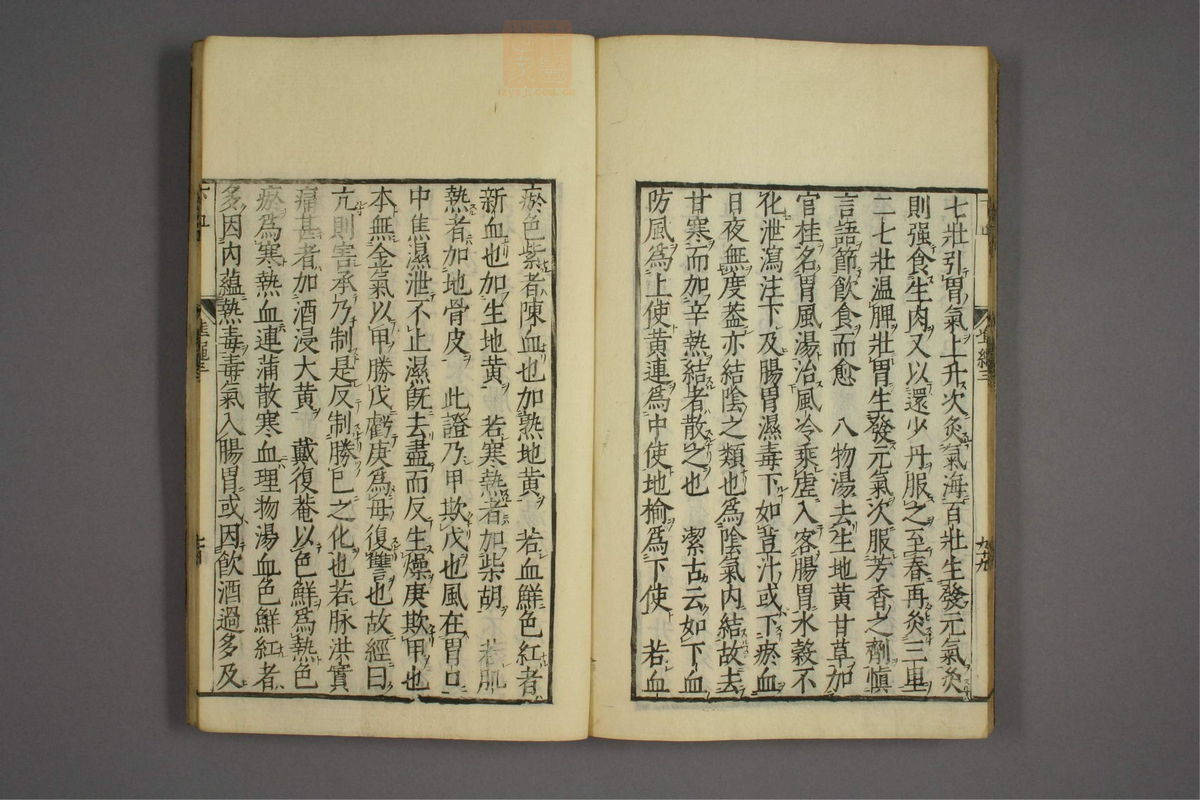 七壯引胃氣上升次灸氣海百壯生發元氣灸
則强食生肉又以還少丹服之至春再灸三里
二七壯温脾壯胃生發元氣次服芳香之劑愼
言語節飲食而愈 八物湯去生地黄甘草加
官桂名胃風湯治風冷乘虚入客腸胃水穀不
化泄瀉注下及腸胃濕毒下如荳汁或下瘀血
日夜無度葢亦結陰之類也為陰氣内結故去
甘寒而加辛熱結者散之也 潔古云如下血
防風為上使黄連為中使地榆為下使 若血
瘀色紫者陳血也加熟地黄 若血鮮色紅者
新血也加生地黄 若寒熱者加柴胡 若肌
熱者加地骨皮 此證乃甲欺戊也風在胃口
中焦濕泄不止濕旣去盡而反生燥庚欺甲也
本無金氣以甲勝戊虧庚為母復讐也故經曰
亢則害承乃制是反制勝巳之化也若脉洪實
痛甚者加酒浸大黄 戴復菴以色鮮爲熱色
瘀爲寒熱血連蒲散寒血理物湯血色鮮紅者
多因内蘊熱毒毒氣入腸胃或因飲酒過多及